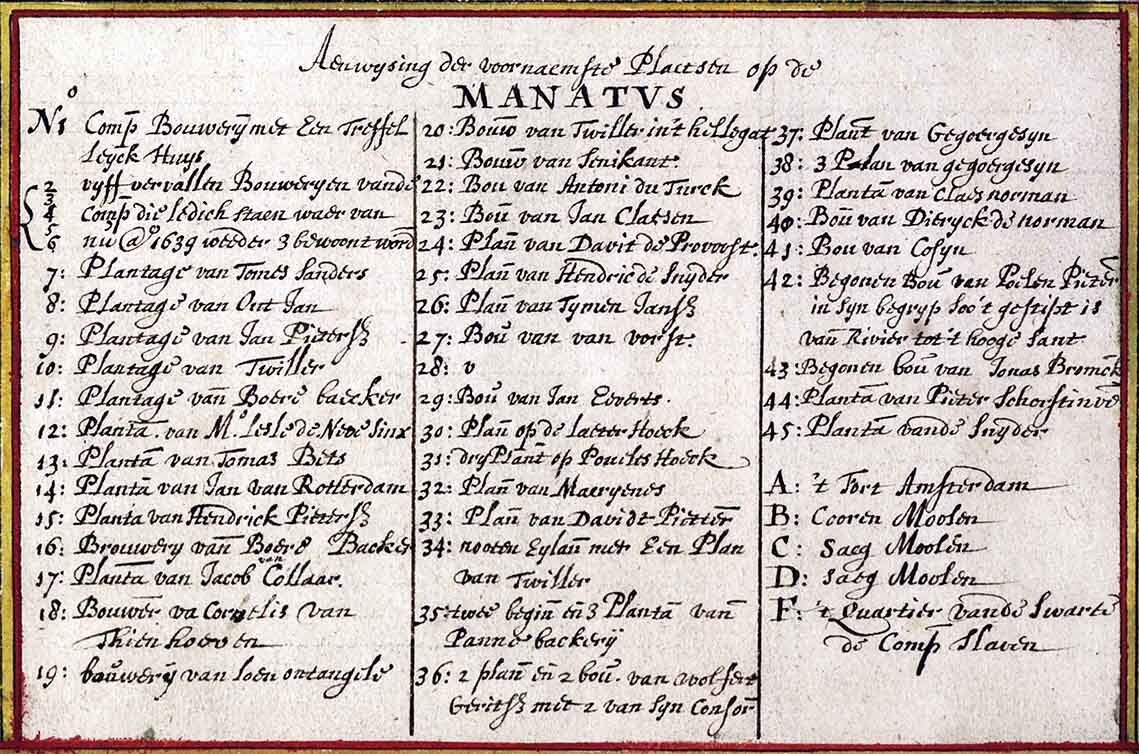 Aenwysing der voornaemste Plaetsen op de
MANATVS.
No 1 Comp Bouwery met Een Treffel
leyck Huys
2 vyff vervallen Bouweryen vande
3
4 Comp die ledich staen waer van
5
6 nu @o 1639 weeder 3 bewoont word
7: Plantage van Tomes Sanders
8: Plantage van Out Jan
9: Plantage van Jan Pietersz
10: Plantage van Twiller
11: Plantage van Boere baecker
12: Planta. van Mo. Lesle de Neve Sinx
13: Planta van Tomas Bets
14: Planta van Jan van Rotterdam
15: Planta van Hendrick Pietersz
16: Brouwery van Boere Backer
17: Planta van Jacob van Collaar.
18: Bouwer va Cornelis van
Thienhoeven
19: bouwery van loen ontangele
20: Bouw van Twiller in't hellegat
21: Bouw van Senikant:
22: Bou van Antoni du Turck
23: Bou van Jan Claesen
24: Plan van Davit de Provoost:
25: Plan van Hendric de Snyder
26: Plan van Tymen Jansz
27: Bou van van vorst:
28: v
29: Bou van Jan Eeverts.
30: Plan op de laeter Hoeck
31: dry Plant op Poueles Hoeck
32: Plan van Maeryenes
33: Plan van Davidt Pietter
34: nooten Eylan met Een Plan
van Twiller
35: twee begin en 3 Planta van
Panne backerij
36: 2 plan en 2 bou. van Wolfert
Geritsz met 2 van Syn Consor
37: Plant van Gegoergesyn
38: 3 Plan van gegoergesyn
39: Planta van Claes norman
40: Bou van Dieryck de norman
41: Bou van Cosyn
42: Begonen Bou van Poelen Pieter
in syn begryp soo't gestipt is
van Rivier tot't hooge lant
43: Begonen bou van Jonas Bromck
44: Planta van Pieter Schorstinve
45: Planta vande Snyder
A: 't Fort Amsterdam
B: Cooren Moolen
C: Saeg Moolen
D: Saeg Moolen
F: 't Quartier vande Swarte
de Comp Slaven